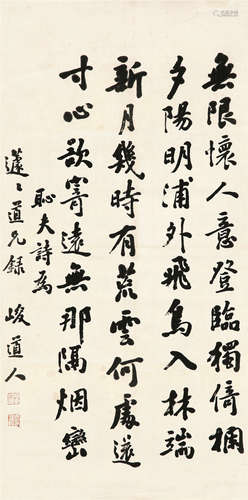 無限懷人意登臨獨倚欄
夕陽明浦外飛鳥入林端
新月幾時有荒雲何處還
寸心欲寄遠無那隔烟巒
恥夫詩為
蘧〻道兄錄
峻道人